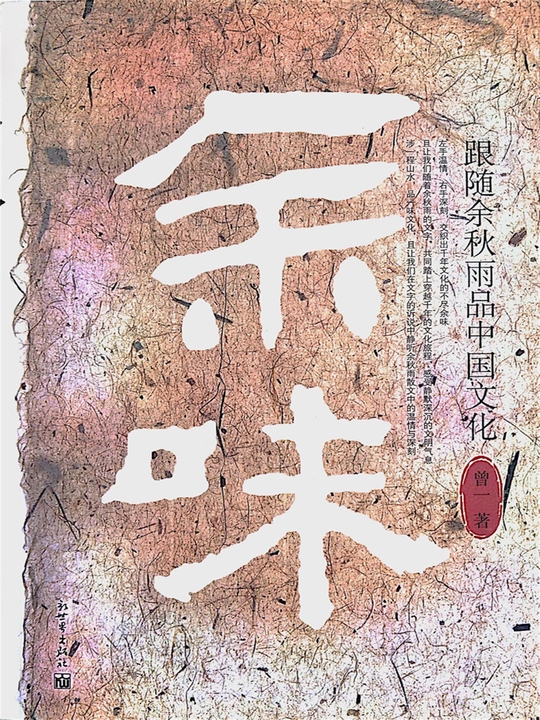 余味
跟随余秋雨品中国文化
左手温情，右手深刻，交织出千年文化的不尽余味
且让我们随着余秋雨的文字，共同踏上穿越千年的文化旅程，感受静默深沉的文明气息
涉一程山水，品一味文化，且让我们在文字的诉说中静听余秋雨散文中的温情与深刻
曾一 著
新世界出版社